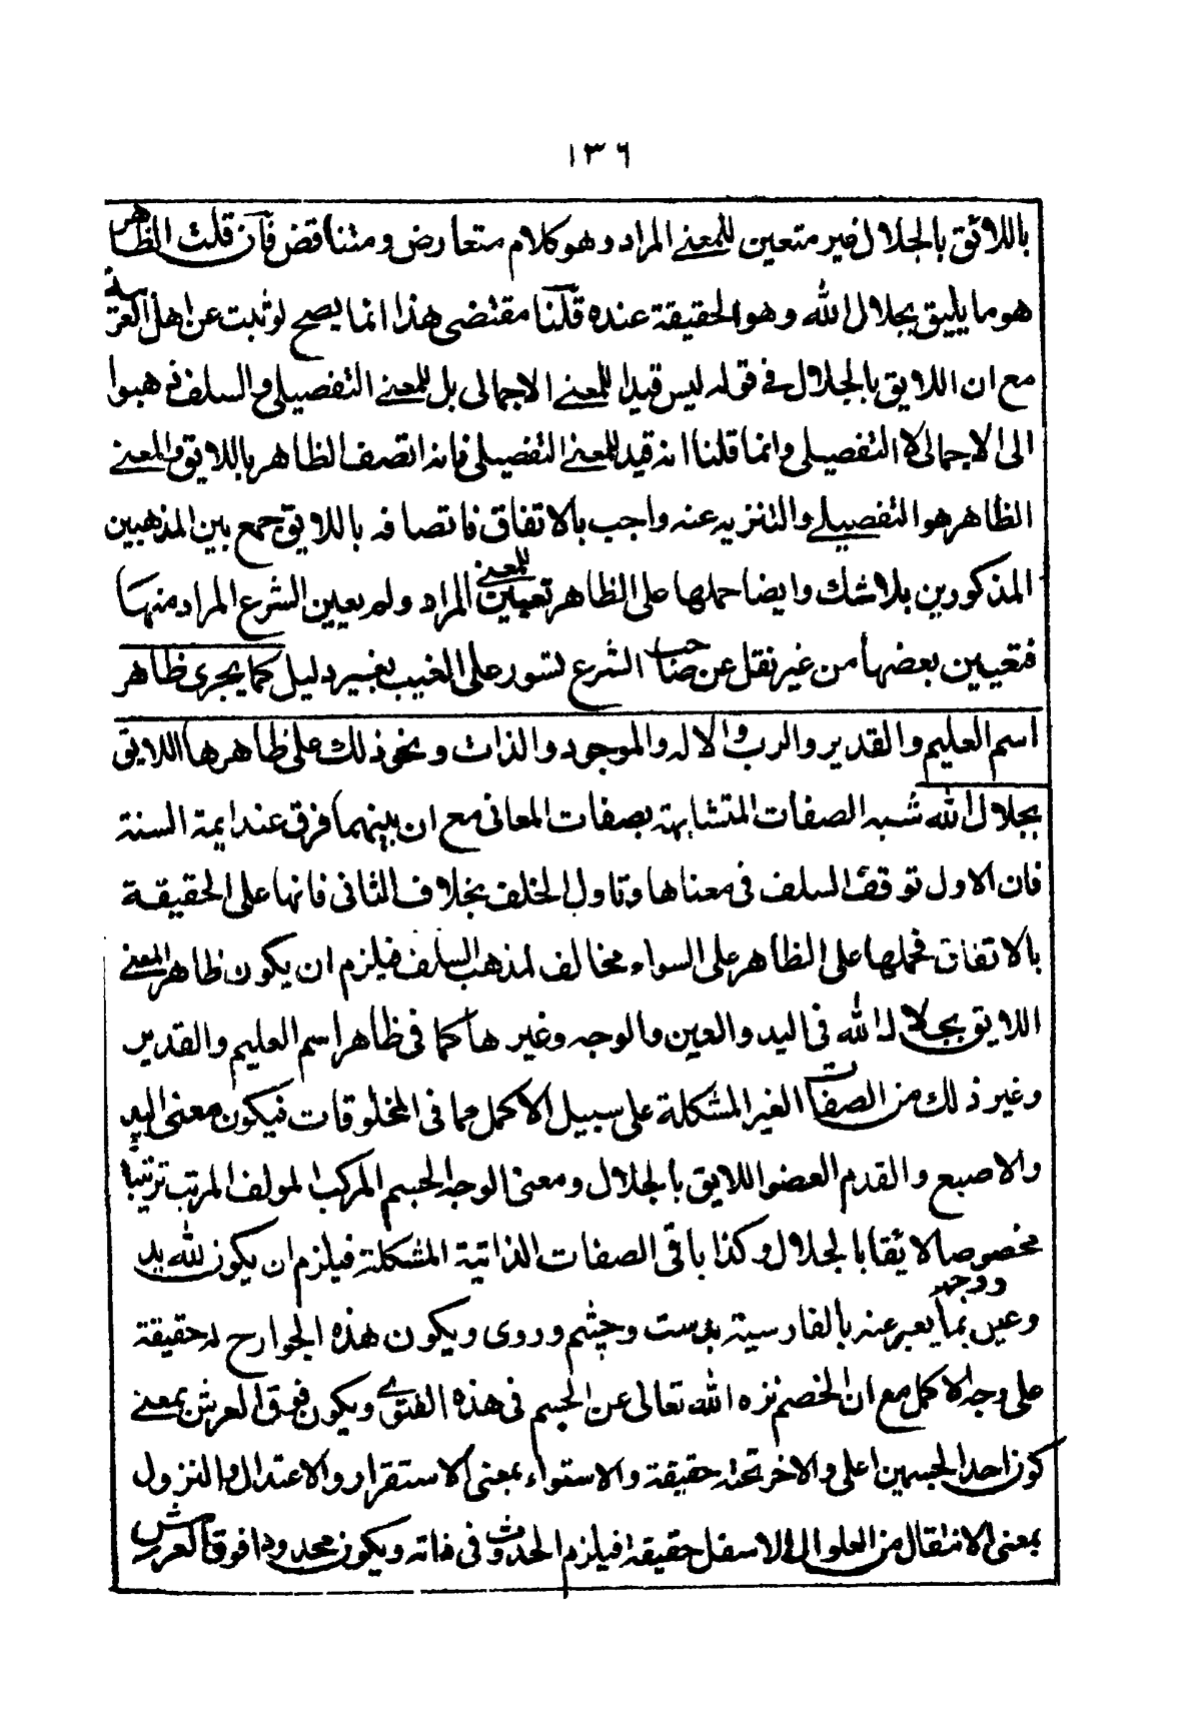 ١٣٦
باللائق بالجلال غير متعين للمعنے المراد وهو كلام متعارض ومتناقض فان قلت الظاهر
هو ما يليق بجلال الله وهو الحقيقة عنده قلنا مقتضى هذا انما يصح لو ثبت عن اهل العربية
مع ان اللايق بالجلال فے قوله ليس قيدا للمعنے الاجمالى بل للمعنے التفصيلى والسلف ذهبوا
الى الاجمالى لا التفصيلى وانما قلنا انه قيد للمعنے التفصيلى فانه اتصف الظاهر باللايق والمعنے
الظاهر هو التفصيلے والتنزيه عنه واجب بالاتفاق فاتصافه باللايق جمع بين المذهبين
المذكورين بلا شك وايضا حملها على الظاهر تعيين للمعنے المراد ولم يعين الشرع المراد منها
فتعيين بعضها من غير نقل عن صاحب الشرع تسور على الغيب بغير دليل كما يجرى ظاهر
اسم العليم والقدير والرب والاله والموجود والذات ونحو ذلك على ظاهرها اللايق
بجلال الله شبه الصفات المتشابهة بصفات المعانى مع ان بينهما فرق عند ايمة السنة
فان الاول توقف السلف فى معناها وتاول الخلف بخلاف الثانى فانها على الحقيقة
بالاتفاق فحملها على الظاهر على السواء مخالف لمذهب السلف فيلزم ان يكون ظاهر المعنے
اللايق بجلال الله فى اليد والعين والوجه وغيرها كما فى ظاهر اسم العليم والقدير
وغير ذلك من الصفات الغير المشكلة على سبيل الاكمل مما فى المخلوقات فيكون معنى اليد
والاصبع والقدم العضو اللايق بالجلال ومعنى الوجه الجسم المركب المولف المرتب ترتيبا
مخصوصا لايقا بالجلال وكذا باقى الصفات الذاتية المشكلة فيلزم ان يكون لله يد
وعين ووجه بما يعبر عنه بالفارسية بدست وچشم وروى ويكون هذه الجوارح له حقيقة
على وجه الاكمل مع ان الخصم نزه الله تعالى عن الجسم فى هذه الفتوى ويكون فوق العرش بمعنے
كون احد الجسمين اعلى والاخر تحته حقيقة والاستواء بمعنى الاستقرار والاعتدال والنزول
بمعنى الانتقال من العلو الى الاسفل حقيقة فيلزم الحدوث فى ذاته ويكون محدودا فوق العرش